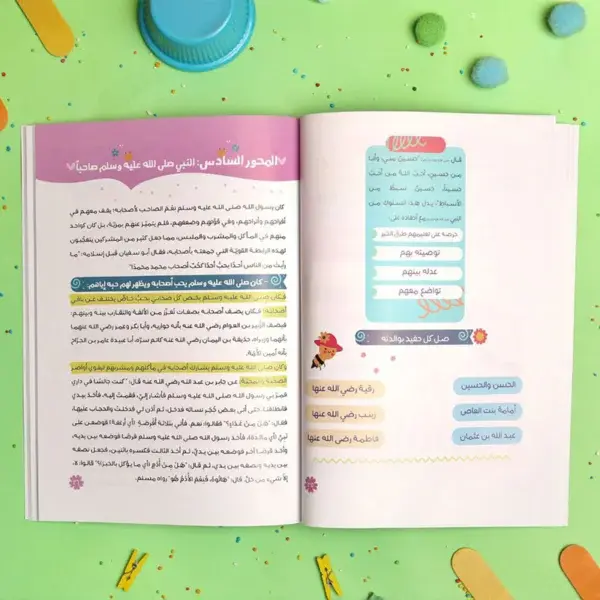 المحور السادس: النبي صلى الله عليه وسلم صاحباً
كان رسول الله صلى الله عليه وسلم نعم الصاحب لأصحابه؛ يقف معهم في
أفراحهم وأتراحهم، وفي قوتهم وضعفهم، فلم يتميز عنهم بميزة، بل كان كواحد
منهم في المأكل والمشرب والملبس، مما جعل كثير من المشركين يتعجبون
لهذه الرابطة القوية التي جمعته بأصحابه، فقال أبو سفيان قبل إسلامه: "ما
رأيت من الناس أحدًا يحب أحدًا كحب أصحاب محمد محمدًا"
- كان صلى الله عليه وسلم يحب أصحابه ويظهر لهم حبه إياهم:
فكان صلى الله عليه وسلم يخص كل صحابي بحب خاص يختلف عن باقي
أصحابه؛ فكان يصف أصحابه بصفات تعزز من الألفة والتقارب بينه وبينهم؛
فيصف الزبير بن العوام رضي الله عنه بأنه حواريه، وأبا بكر وعمر رضي الله عنهما
بأنهما وزيراه، حذيفة بن اليمان رضي الله عنه كاتم سره، أبا عبيدة عامر بن الجراح
بأنه أمين الأمة.
وكان صلى الله عليه وسلم يشارك أصحابه في مأكلهم ومشربهم ليقوي أواصر
الصحبة والمحبة؛ عن جابر بن عبد الله رضي الله عنه قال: "كنت جالسًا في داري
فمر بي رسول الله صلى الله عليه وسلم فأشار إلي، فقمت إليه، فأخذ بيدي
فانطلقنا، حتى أتى بعض حجر نسائه فدخل، ثم أذن لي فدخلت والحجاب عليها،
فقال: "هل من غداء؟" فقالوا: نعم، فأتي بثلاثة أقرصة
نبي، فأخذ رسول الله صلى الله عليه وسلم قرصًا فوضعه بين يديه،
وأخذ قرصًا آخر فوضعه بين يدي، ثم أخذ الثالث فكسره باثنين، فجعل نصفه
بين يديه ونصفه بين يدي، ثم قال: "هل من أدم" قالوا: لا،
إلا شيء من خل، قال: "هاتوه، فنعم الأدم هو" رواه مسلم.
قال "حسين مني وأنا
من حسين، أحب الله من أحب
حسيناً، حسين سبط من
الأسباط"، يدل هذا السلوك من
النبي أحفاده على:
حرصه على تعليمهم طرق الخير
توصيته بهم
عدله بينهم
تواضع معهم
صل كل حفيد بوالدته
الحسن والحسين
رقية رضي الله عنها
أمامة بنت العاص
زينب رضي الله عنها
عبد الله بن عثمان
فاطمة رضي الله عنها